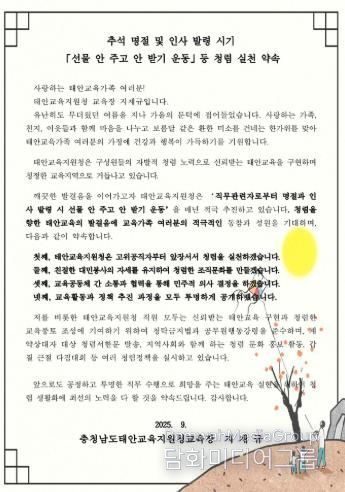 추석 명절 및 인사 발령 시기
「선물 안 주고 안 받기 운동」등 청렴 실천 약속
사랑하는 태안교육가족 여러분!
태안교육지원청 교육장 지재규입니다.
유난히도 무더웠던 여름을 지나 가을의 문턱에 접어들었습니다. 사랑하는 가족,
친지, 이웃들과 함께 마음을 나누고 보름달 같은 환한 미소를 건네는 한가위를 맞아
태안교육가족 여러분의 가정에 건강과 행복이 가득하기를 기원합니다.
태안교육지원청은 구성원들의 자발적 청렴 노력으로 신뢰받는 태안교육을 구현하며
청정한 교육지역으로 거듭나고 있습니다.
깨끗한 발걸음을 이어가고자 태안교육지원청은 '직무관련자로부터 명절과 인
사 발령 시 선물 안 주고 안 받기 운동'을 매년 적극 추진하고 있습니다. 청렴을
향한 태안교육의 발걸음에 교육가족 여러분의 적극적인 동참과 성원을 기대하며,
다음과 같이 약속합니다.
첫째, 태안교육지원청은 고위공직자부터 앞장서서 청렴을 실천하겠습니다.
둘째, 친절한 대민봉사의 자세를 유지하여 청렴한 조직문화를 만들겠습니다.
셋째, 교육공동체 간 소통과 협력을 통해 민주적 의사 결정을 하겠습니다.
넷째, 교육활동과 정책 추진 과정을 모두 투명하게 공개하겠습니다.
저를 비롯한 태안교육지원청 직원 모두는 신뢰받는 태안교육 구현과 청렴한
교육풍토 조성에 기여하기 위하여 청탁금지법과 공무원행동강령을 준수하며, 계
약상대자 대상 청렴서한문 발송, 지역사회와 함께 하는 청렴 문화 홍보 활동, 갑
질 근절 다짐대회 등 여러 청렴정책을 실시하고 있습니다.
앞으로도 공정하고 투명한 직무 수행으로 희망을 주는 태안교육 실현을 위하여 청
렴 생활화에 최선의 노력을 다 할 것을 약속드립니다. 감사합니다.
2025. 9.
충청남도태안교육지원청교육장 지재규
MediaGroup
담화미디어그룹